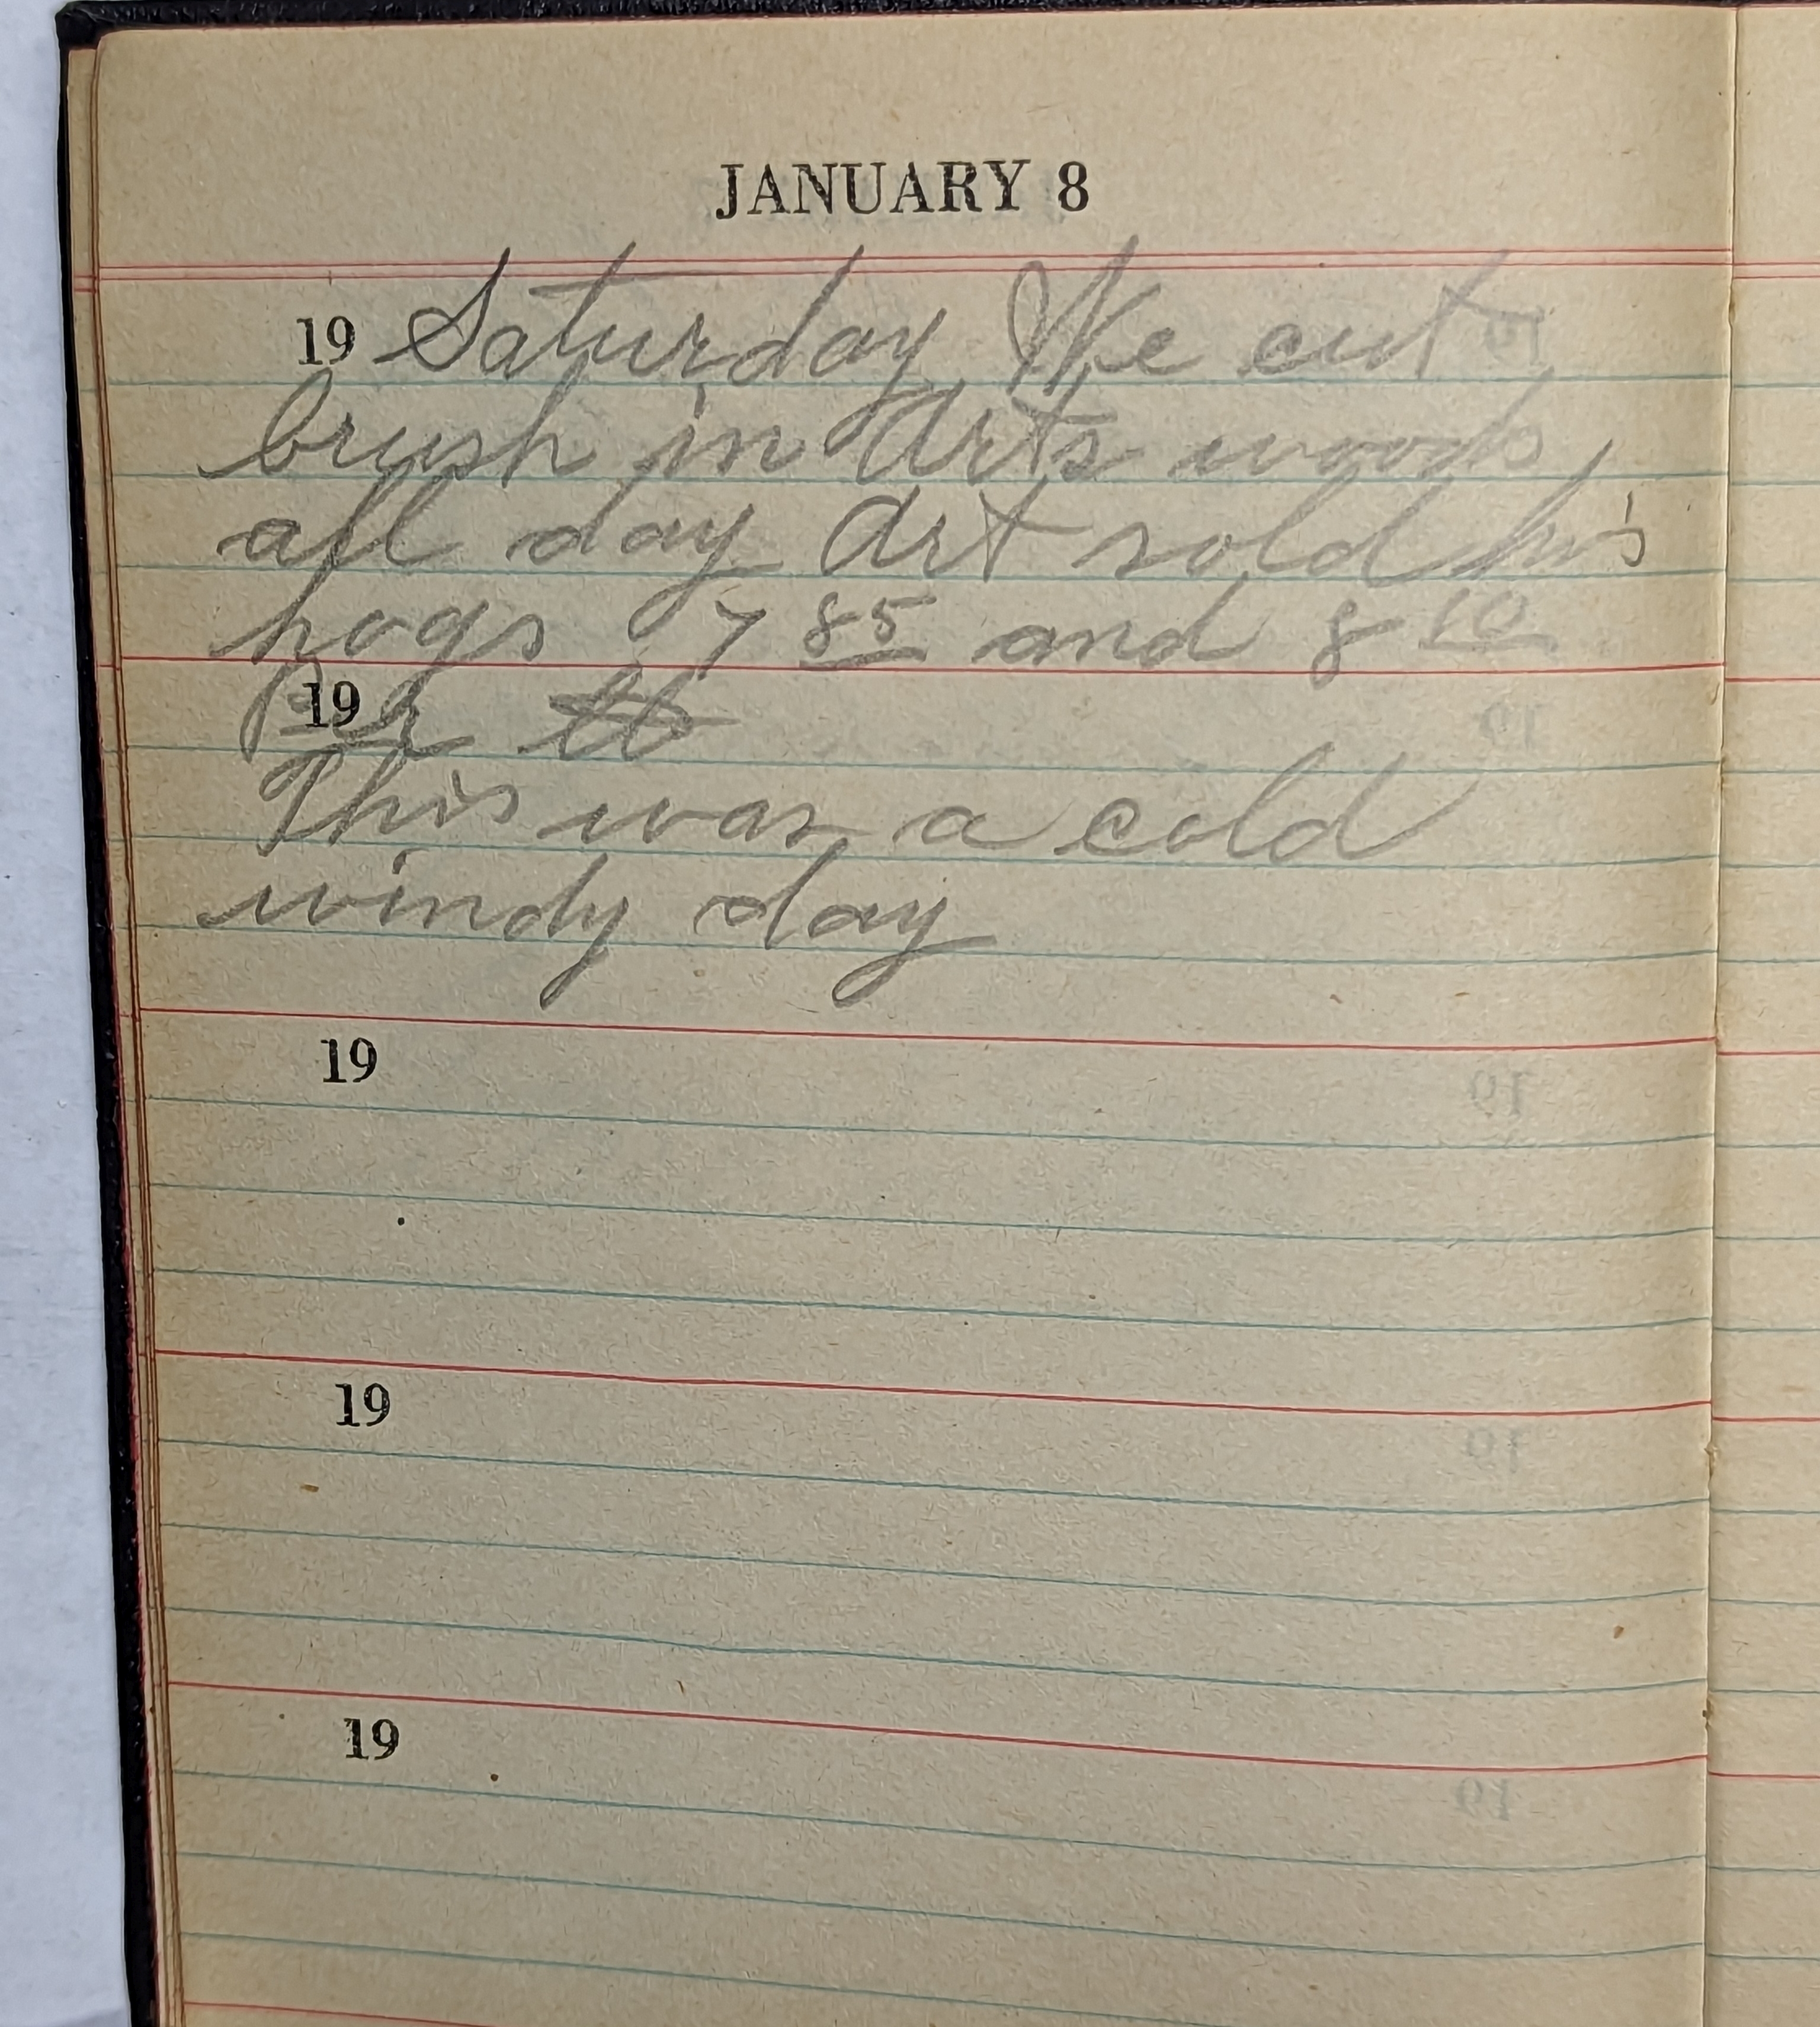 JANUARY 8
19 Saturday We cut
brush in Arts woods
all day Art sold his
hogs 7 85 and 8 10
19
This was a cold
windy day
19
19
19